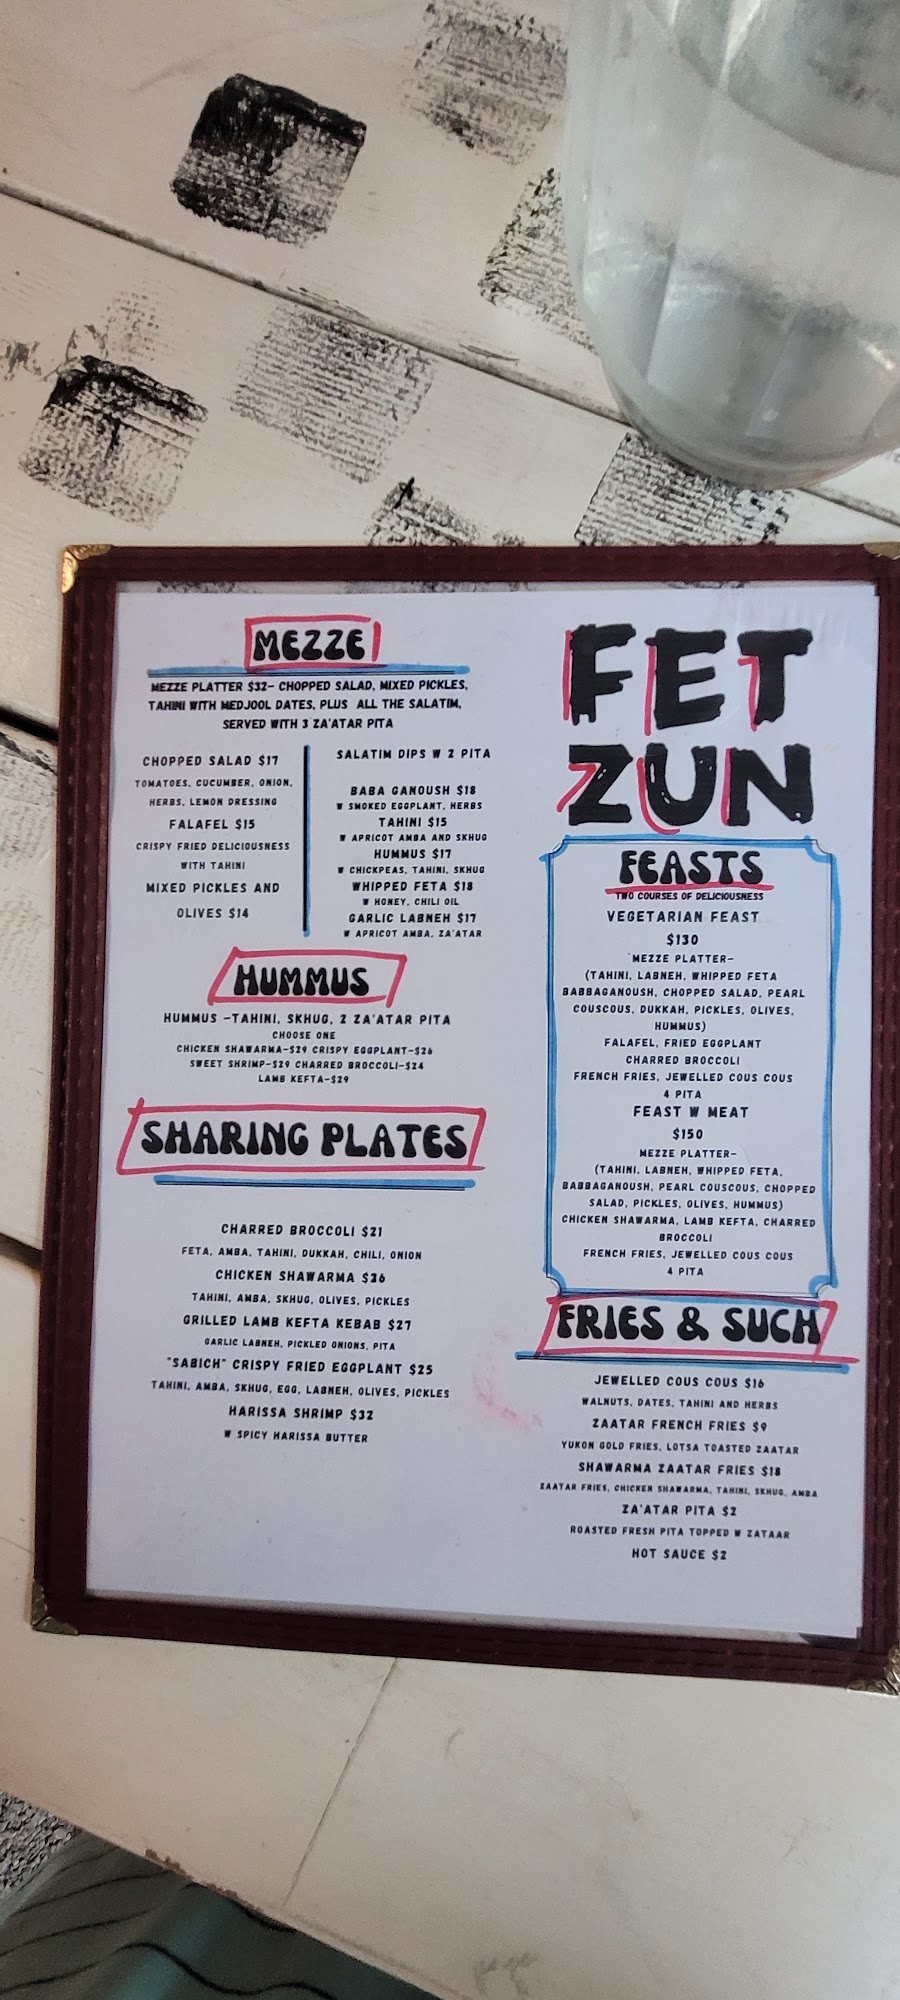 MEZZE
MEZZE PLATTER $32- CHOPPED SALAD, MIXED PICKLES,
TAHINI WITH MEDJOOL DATES, PLUS ALL THE SALATIM,
SERVED WITH 3 ZA'ATAR PITA
CHOPPED SALAD $17
TOMATOES, CUCUMBER, ONION,
HERBS, LEMON DRESSING
FALAFEL $15
CRISPY FRIED DELICIOUSNESS
WITH TAHINI
MIXED PICKLES AND
OLIVES $14
SALATIM DIPS W 2 PITA
BABA GANOUSH $18
W SMOKED EGGPLANT, HERBS
TAHINI $15
W APRICOT AMBA AND SKHUG
HUMMUS $17
W CHICKPEAS, TAHINI, SKHUG
WHIPPED FETA $18
W HONEY, CHILI OIL
GARLIC LABNEH $17
W APRICOT AMBA, ZA'ATAR
HUMMUS
HUMMUS -TAHINI, SKHUG, 2 ZA'ATAR PITA
CHOOSE ONE
CHICKEN SHAWARMA-$29 CRISPY EGGPLANT-$26
SWEET SHRIMP-$29 CHARRED BROCCOLI-$24
LAMB KEFTA-$29
SHARING PLATES
CHARRED BROCCOLI $21
FETA, AMBA, TAHINI, DUKKAH, CHILI, ONION
CHICKEN SHAWARMA $26
TAHINI, AMBA, SKHUG, OLIVES, PICKLES
GRILLED LAMB KEFTA KEBAB $27
GARLIC LABNEH, PICKLED ONIONS, PITA
"SABICH" CRISPY FRIED EGGPLANT $25
TAHINI, AMBA, SKHUG, EGG, LABNEH, OLIVES, PICKLES
HARISSA SHRIMP $32
W SPICY HARISSA BUTTER
FET
ZUN
FEASTS
TWO COURSES OF DELICIOUSNESS
VEGETARIAN FEAST
$130
MEZZE PLATTER-
(TAHINI, LABNEH, WHIPPED FETA
BABBAGANOUSH, CHOPPED SALAD, PEARL
COUSCOUS, DUKKAH, PICKLES, OLIVES,
HUMMUS)
FALAFEL, FRIED EGGPLANT
CHARRED BROCCOLI
FRENCH FRIES, JEWELLED COUS COUS
4 PITA
FEAST W MEAT
$150
MEZZE PLATTER-
(TAHINI, LABNEH, WHIPPED FETA,
BABBAGANOUSH, PEARL COUSCOUS, CHOPPED
SALAD, PICKLES, OLIVES, HUMMUS)
CHICKEN SHAWARMA, LAMB KEFTA, CHARRED
BROCCOLI
FRENCH FRIES, JEWELLED COUS COUS
4 PITA
FRIES & SUCH
JEWELLED COUS COUS $16
WALNUTS, DATES, TAHINI AND HERBS
ZAATAR FRENCH FRIES $9
YUKON GOLD FRIES, LOTSA TOASTED ZAATAR
SHAWARMA ZAATAR FRIES $18
ZAATAR FRIES, CHICKEN SHAWARMA, TAHINI, SKHUG, AMBA
ZA'ATAR PITA $2
ROASTED FRESH PITA TOPPED W ZATAAR
HOT SAUCE $2